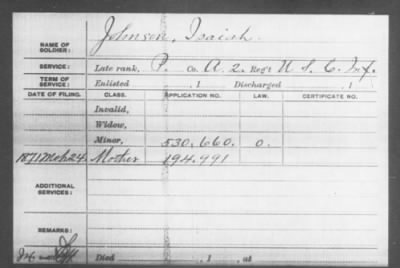 NAME OF SOLDIER: Johnson, Isaiah.
SERVICE: Late rank, P. Co. A. 2. Reg't U. S. C. Inf.
TERM OF SERVICE: Enlisted , 1 Discharged , 1
DATE OF FILING. CLASS. APPLICATION NO. LAW. CERTIFICATE NO.
Invalid,
Widow,
Minor, 530.660. O.
1871 Mch 24. Mother 194.991
ADDITIONAL SERVICES:
REMARKS:
Died , 1 , at